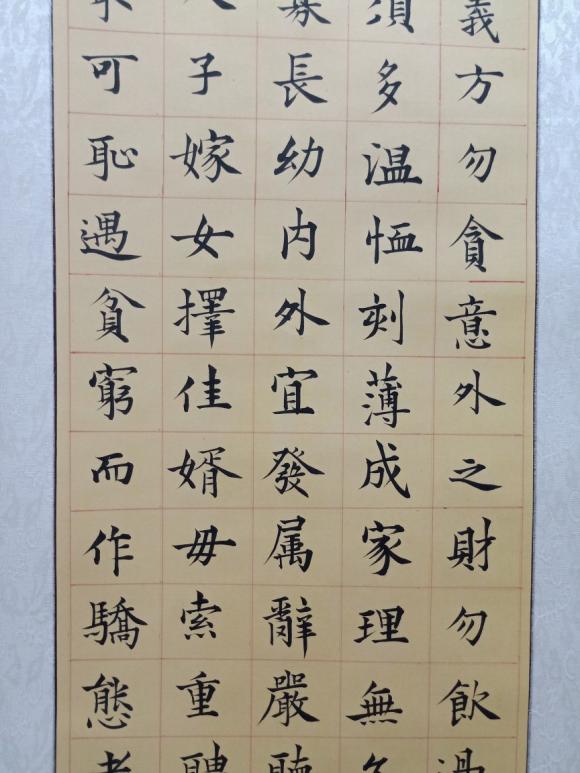 義方勿貪意外之財勿飲過
須多温恤刻薄成家理無久
寡長幼内外宜發属辭嚴聽
子嫁女擇佳婿毋索重聘
可恥遇貧窮而作驕態者